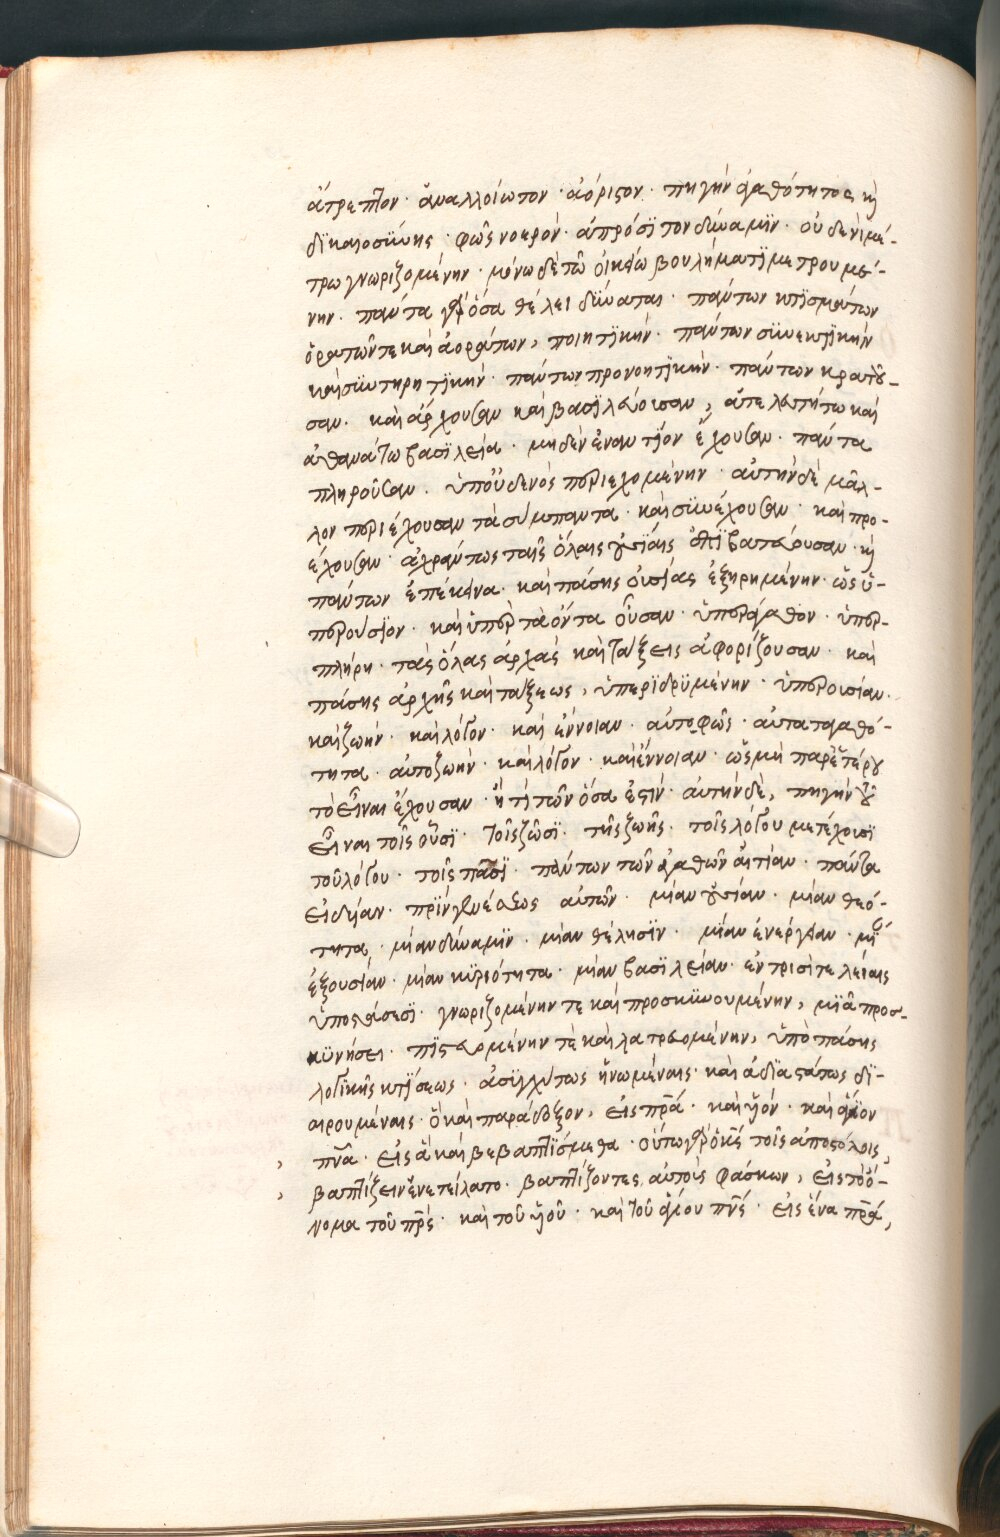 ἄτρεπτον · ἀναλλοίωτον · ἀόριστον · πηγὴν ἀγαθότητος κ(αὶ)
δϊκαιοσύνης · φῶς νοερὸν · ἀπρόσϊτον δύναμϊν · οὐδενὶ μέ-
τρω γνωριζομένην · μόνω δὲ τῶ οἰκείω βουλήματϊ μετρουμέ-
νην · πάντα γὰρ ὅσα θέλει δύναται · πάντων κτϊσμάτων
ὁρατῶν τε καὶ ἀοράτων, ποιητϊκὴν · πάντων συνεκτϊκὴν
καὶ συντηρητϊκὴν · πάντων προνοητϊκὴν · πάντων κρατοῦ-
σαν · καὶ ἄρχουσαν καὶ βασϊλεύουσαν, ἀτελευτήτω καὶ
ἀθανάτω βασϊλεία · μηδὲν ἐναντϊον ἔχουσαν · πάντα
πληροῦσαν · ὑπ' οὐδενὸς περιεχομένην · αὐτὴν δὲ μᾶλ-
λον περιέχουσαν τὰ σύμπαντα · καὶ συνέχουσαν · καὶ προ-
έχουσαν · ἀχράντως ταῖς ὅλαις οὐσϊαις ἐπϊβατεύουσαν · κ(αὶ)
πάντων ἐπέκεινα · καὶ πάσης οὐσίας ἐξηρημένην · ὡς ὑ-
περούσϊον · καὶ ὑπὲρ τὰ ὄντα οὖσαν · ὑπεράγαθον · ὑπερ-
πλήρη · τὰς ὅλας ἀρχὰς καὶ τάξεις ἀφορίζουσαν · καὶ
πάσης ἀρχῆς καὶ τάξεως, ὑπερϊδρϋμένην · ὑπὲρ οὐσίαν ·
καὶ ζωὴν · καὶ λόγον · καὶ ἔννοιαν · αὐτοφῶς · αὐταγαθό-
τητα · αὐτοζωὴν · καὶ λόγον · καὶ ἔννοιαν · ὡς μὴ παρ' ἑτέρου
τὸ εἶναι ἔχουσαν · ἤ τι τῶν ὅσα ἐστὶν · αὐτὴν δὲ, πηγὴν τοῦ
εἶναι τοῖς οὖσϊ · τοῖς ζῶσϊ · τῆς ζωῆς · τοῖς λόγου μετέχουσϊ
τοῦ λόγου · τοῖς πᾶσϊ · πάντων τῶν ἀγαθῶν αἰτίαν · πάντα
εἰδυῖαν · πρὶν γενέσεως αὐτῶν · μίαν οὐσίαν · μίαν θεό-
τητα, μίαν δύναμϊν · μίαν θέλησϊν · μϊαν ἐνέργειαν · μϊαν
ἐξουσίαν · μίαν κϋριότητα · μίαν βασϊλείαν · ἐν τρισὶ τελείαις
ὑποστάσεσϊ · γνωριζομένην τε καὶ προσκϋνουμένην, μϊᾶ προσ-
κϋνήσει · πϊστευομένην τὲ καὶ λατρευομένην, ὑπὸ πάσης
λογϊκῆς κτίσεως · ἀσϋγχύτως ἡνωμέναις · καὶ ἀδϊαστάτως δϊ-
αιρουμέναις · ὃ καὶ παράδοξον, εἰς πρα · καὶ υἱὸν · καὶ ἅγϊον
πνα · εἰς ἃ καὶ βεβαπτϊσμεθα · οὕτω γὰρ ὁ κς τοῖς ἀποστόλοις,
βαπτίζειν ἐνετείλατο · βαπτίζοντες αὐτοὺς φάσκων, εἰς τὸ ὄ-
νομα τοῦ πρς · καὶ τοῦ υἱοῦ · καὶ τοῦ ἁγίου πνς · εἰς ἕνα πρα,